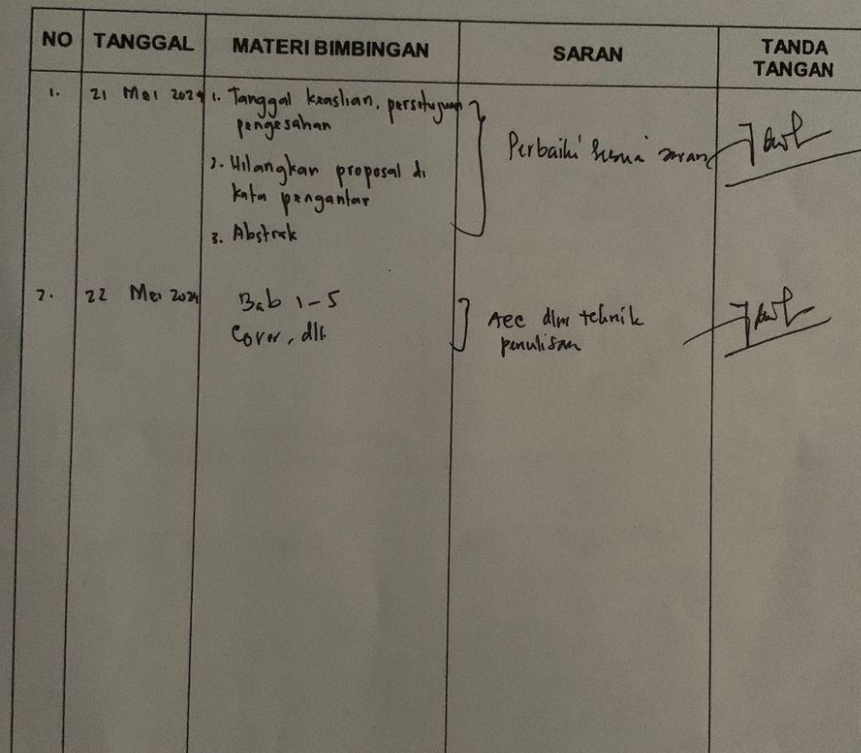 NO TANGGAL MATERI BIMBINGAN SARAN TANDA TANGAN
1. 21 Mei 2024 1. Tanggal keaslian, persetujuan
pengesahan
2. Hilangkan proposal di
kata pengantar
3. Abstrak
Perbaiki sesuai saran
2. 22 Mei 2024 Bab 1-5
Cover, dll
Acc dlm tehnik
penulisan